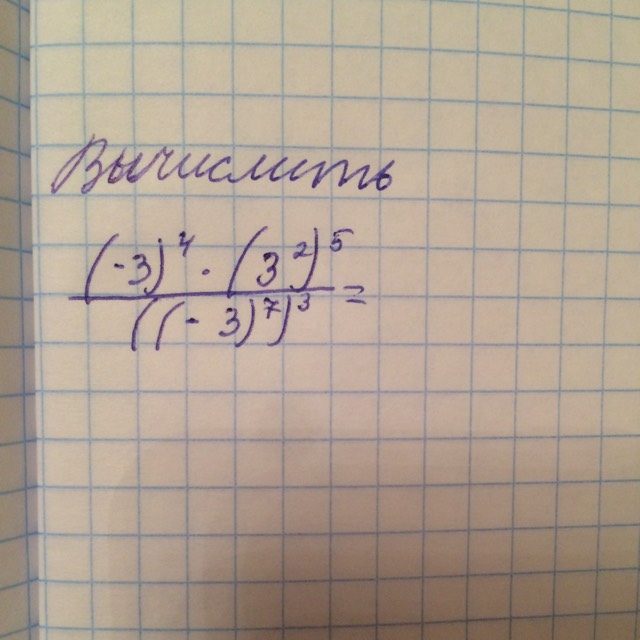 Вычислить
(-3)⁴ · (3²)⁵
((-3)⁷)³ =